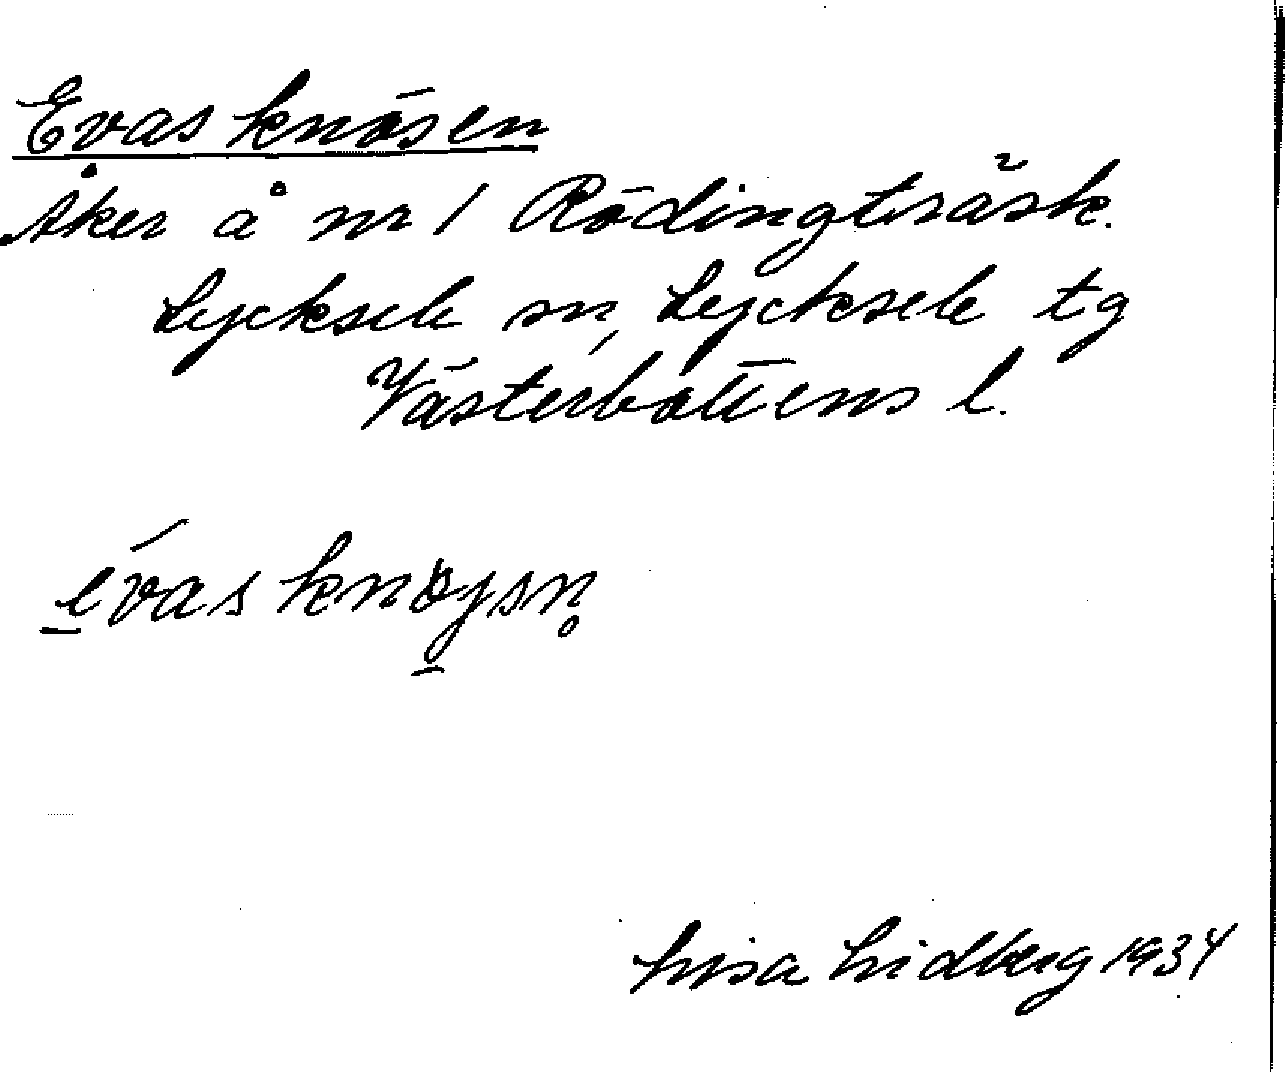 Evasknösen
Åker å nr 1 Rödingträsk.
Lycksele sn, Lycksele tg
Västerbottens l.
évasknøjsn̥
Lisa Lidberg 1934